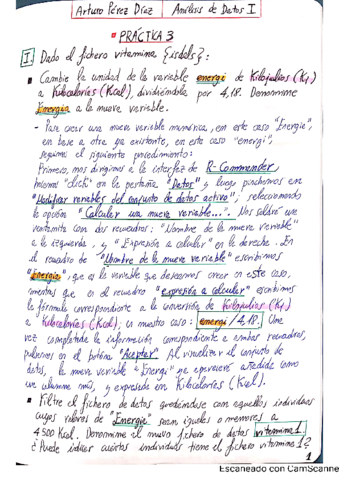 Arturo Pérez Díaz | Análisis de Datos I
• PRÁCTICA 3
I. Dado el fichero vitamina {isdals}:
• Cambie la unidad de la variable energi de Kilojulios (Kj)
a Kilocalorías (Kcal), dividiéndola por 4,18. Denomine
Energia a la nueva variable.
- Para crear una nueva variable numérica, en este caso "Energie",
en base a otra ya existente, en este caso "energi",
seguimos el siguiente procedimiento:
Primero, nos dirigimos a la interfaz de R-Commander,
hacemos "click" en la pestaña "Datos" y luego pinchamos en
"Modificar variables del conjunto de datos activo", seleccionando
la opción "Calcular una nueva variable...". Nos saldrá una
ventanita con dos recuadros: "Nombre de la nueva variable"
a la izquierda, y "Expresión a calcular" en la derecha. En
el recuadro de "Nombre de la nueva variable" escribimos
"Energie", que es la variable que deseamos crear en este caso,
mientras que en el recuadro "expresión a calcular" escribimos
la fórmula correspondiente a la conversión de Kilojulios (Kj)
a Kilocalorías (Kcal); en nuestro caso: energi/4,18. Una
vez completada la información correspondiente a ambos recuadros,
pulsamos en el botón "Aceptar". Al visualizar el conjunto de
datos, la nueva variable "Energi" ya aparecerá añadida como
una columna más, y expresada en Kilocalorías (Kcal).
• Filtre el fichero de datos quedándose con aquellos individuos
cuyos valores de "Energie" sean iguales o menores a
4500 Kcal. Denomine el nuevo fichero de datos vitamina1.
¿Puede indicar cuántos individuos tiene el fichero vitamine1?
1
Escaneado con CamScanner